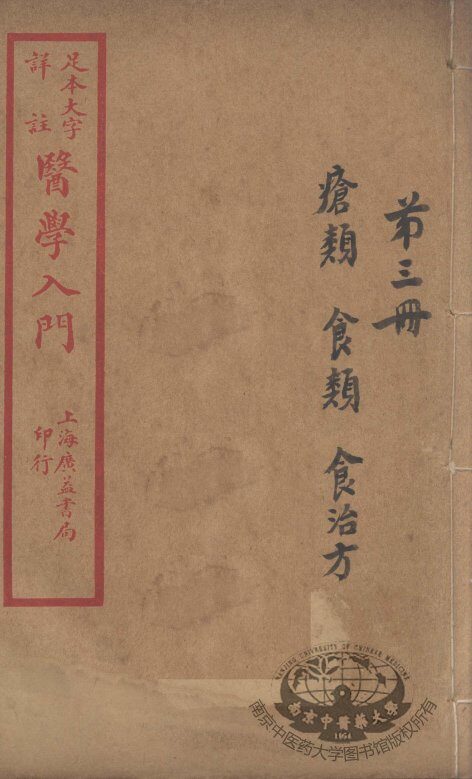 第三冊
瘡類 食類 食治方
足本大字
詳註
醫學入門
上海廣益書局
印行
NANJING UNIVERSITY OF CHINESE MEDICINE
南京中醫藥大學
1954
南京中医药大学图书馆版权所有